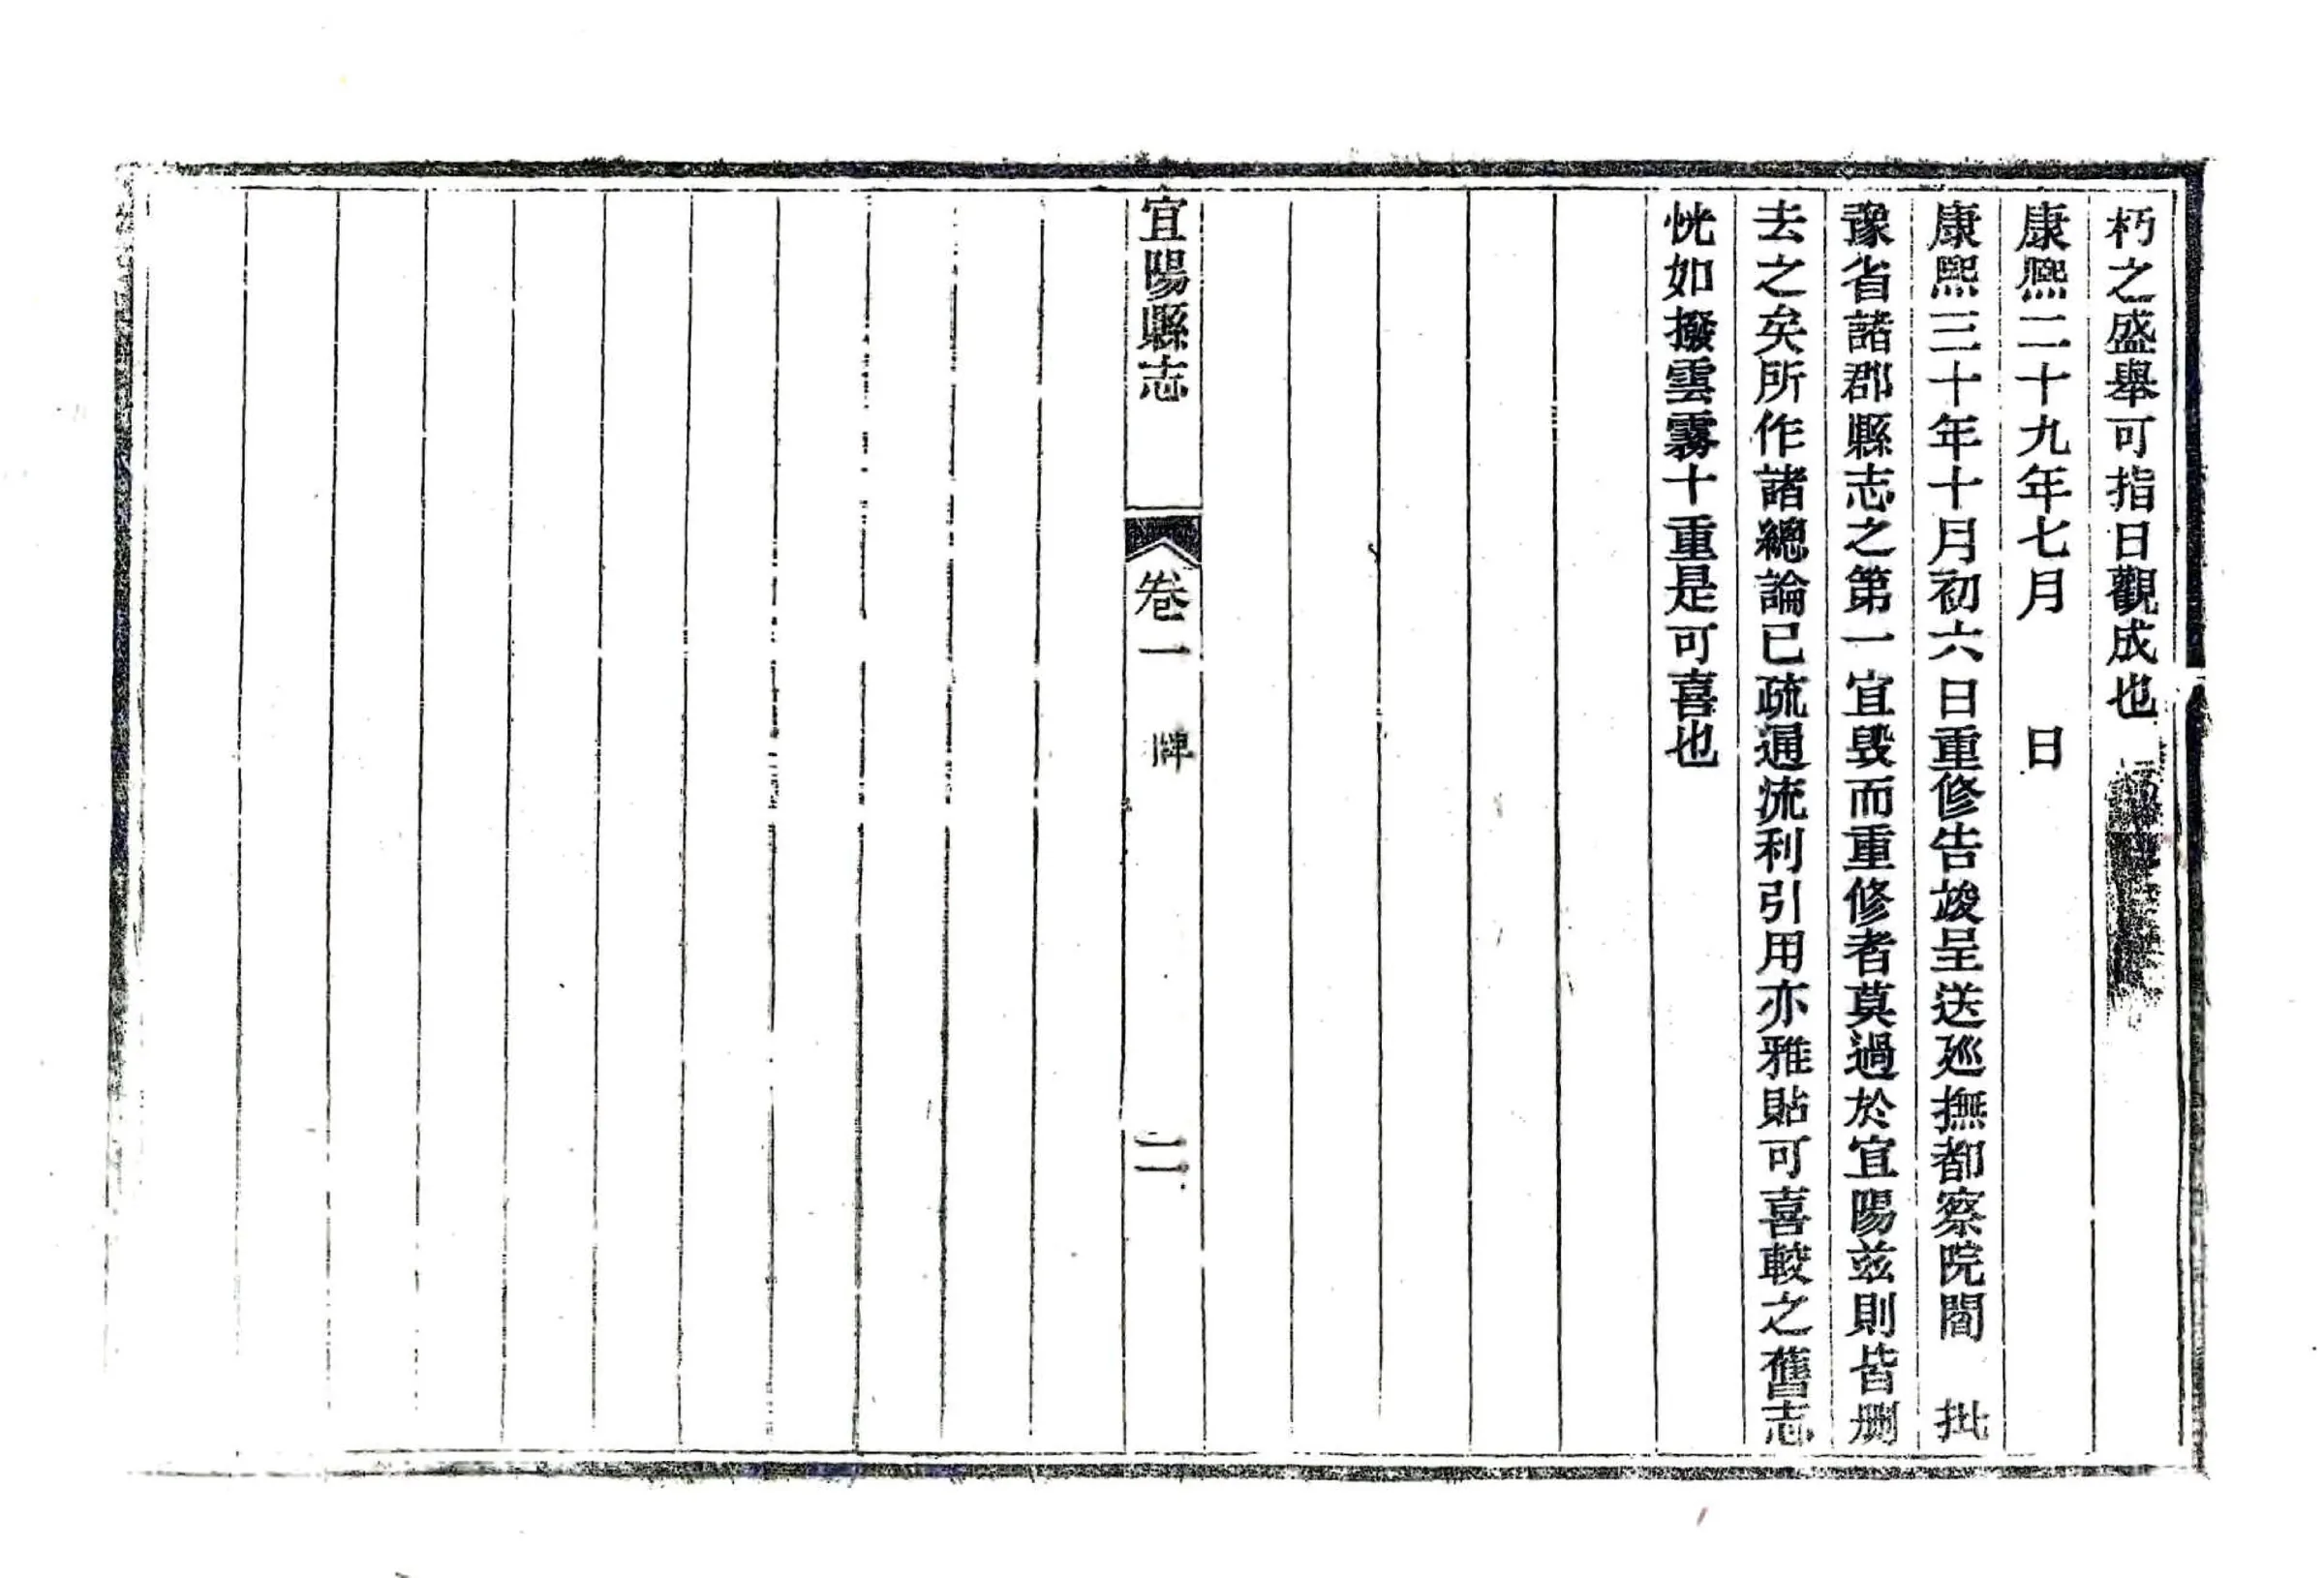 朽之盛舉可指日觀成也
康熙二十九年七月　　日
康熙三十年十月初六日重修告竣呈送廵撫都察院閻　批
豫省諸郡縣志之第一宜毀而重修者莫過於宜陽兹則皆刪
去之矣所作諸總論已疏通流利引用亦雅貼可喜較之舊志
恍如撥雲霧十重是可喜也
宜陽縣志　卷一　牌　二